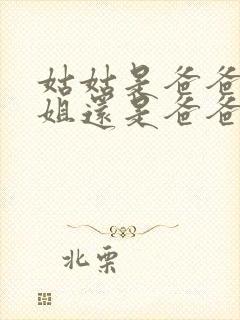 姑姑是爸爸
姐還是爸爸
北栗